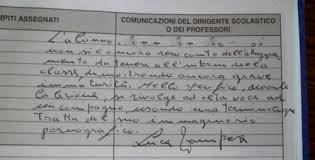 MPITI ASSEGNATI
COMUNICAZIONI DEL DIRIGENTE SCOLASTICO
O DEI PROFESSORI
L'alunno
non si è ancora reso conto dell'atteggia
mento da tenere all'interno della
classe, dimostrando ancora grave
immaturità. Nello specifico, durante
la lezione, si rivolge ad alta voce ad
un compagno usando una terminologia
tratta dal suo immaginario
pornografico.
Luca